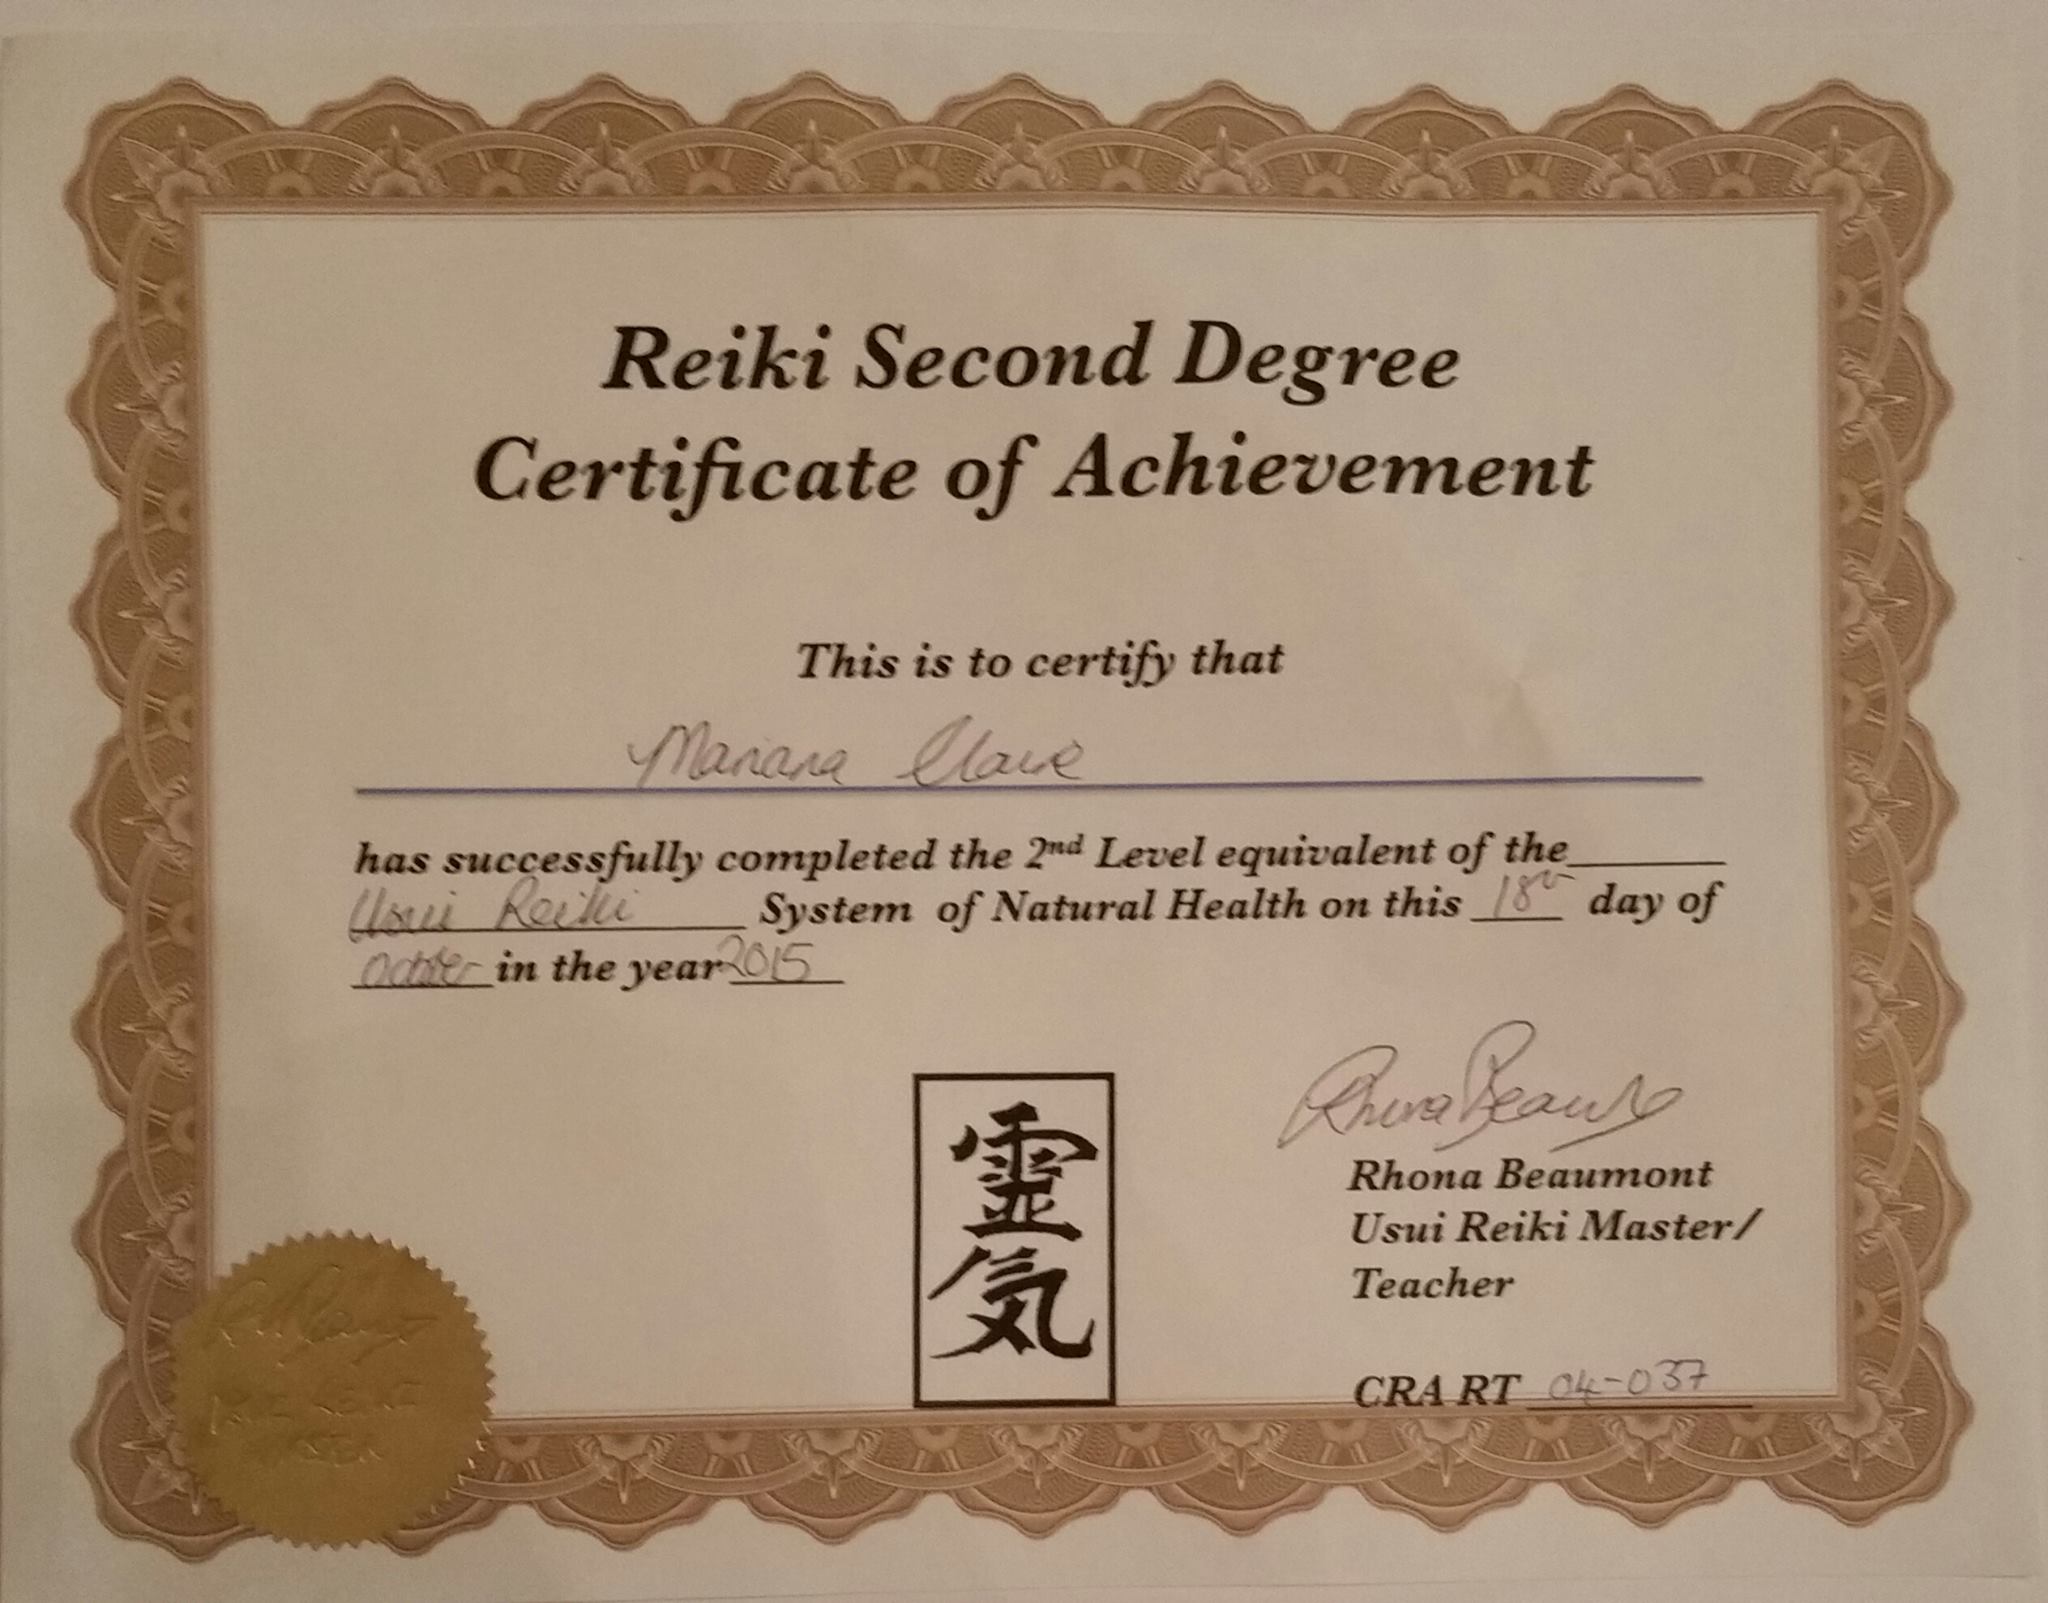 Reiki Second Degree
Certificate of Achievement
This is to certify that
Mariana Claire
has successfully completed the 2nd Level equivalent of the
Usui Reiki System of Natural Health on this 18th day of
October in the year 2015
靈
気
Rhona Beaumont
Rhona Beaumont
Usui Reiki Master/
Teacher
CRA RT 04-037